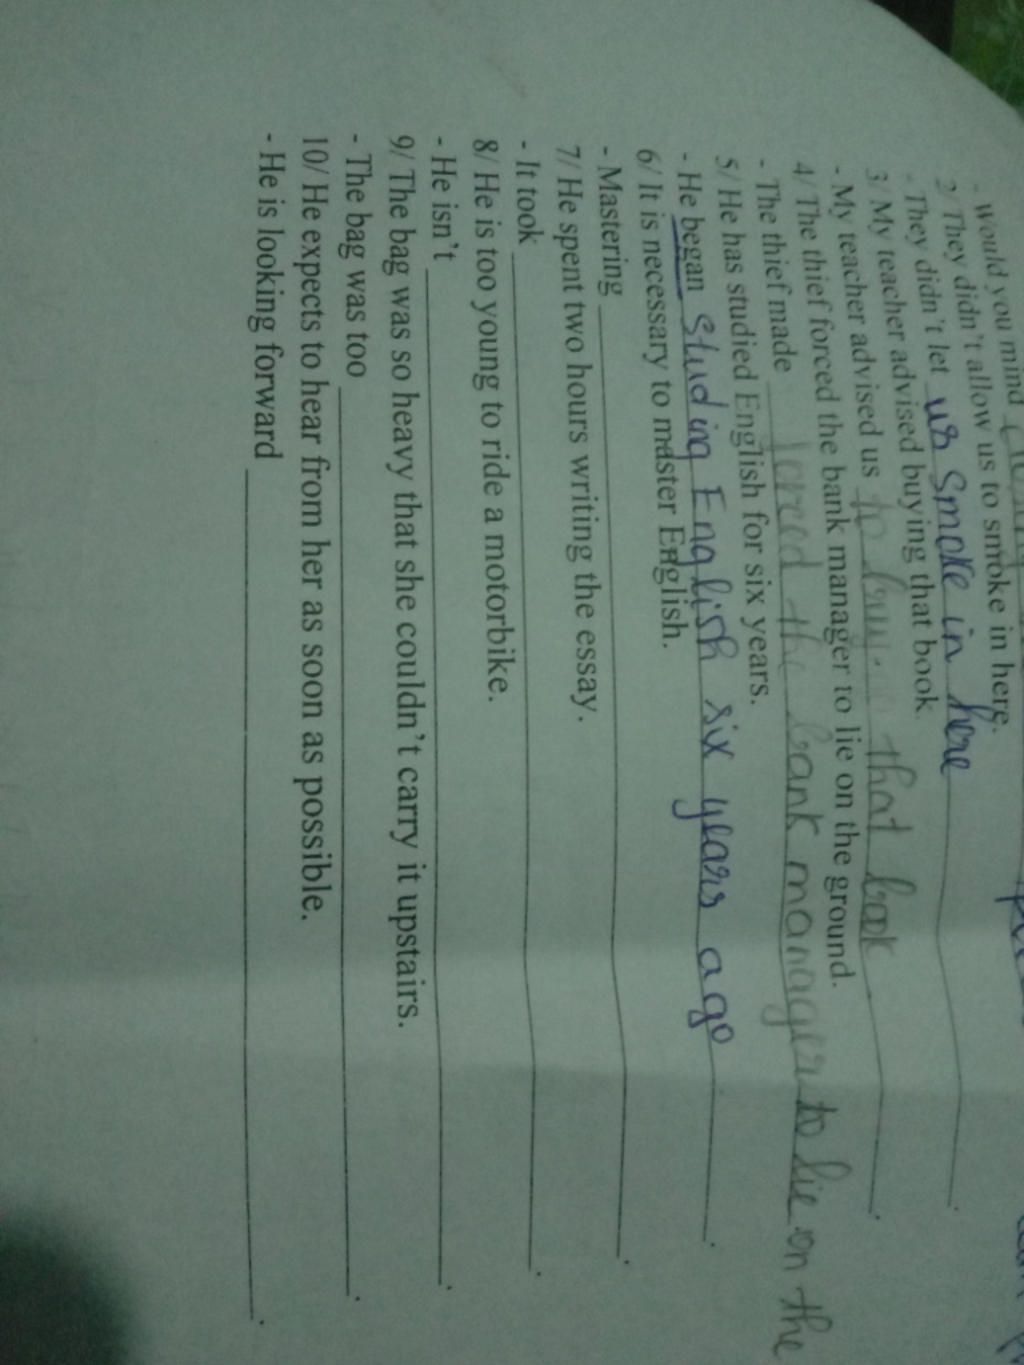 - Would you mind
2/ They didn't allow us to smoke in here.
- They didn't let us Smoke in here.
3/ My teacher advised buying that book.
- My teacher advised us to buy that book.
4/ The thief forced the bank manager to lie on the ground.
- The thief made the bank manager to lie on the
5/ He has studied English for six years.
- He began studing English six years ago.
6/ It is necessary to master English.
- Mastering .
7/ He spent two hours writing the essay.
- It took .
8/ He is too young to ride a motorbike.
- He isn't .
9/ The bag was so heavy that she couldn't carry it upstairs.
- The bag was too .
10/ He expects to hear from her as soon as possible.
- He is looking forward .